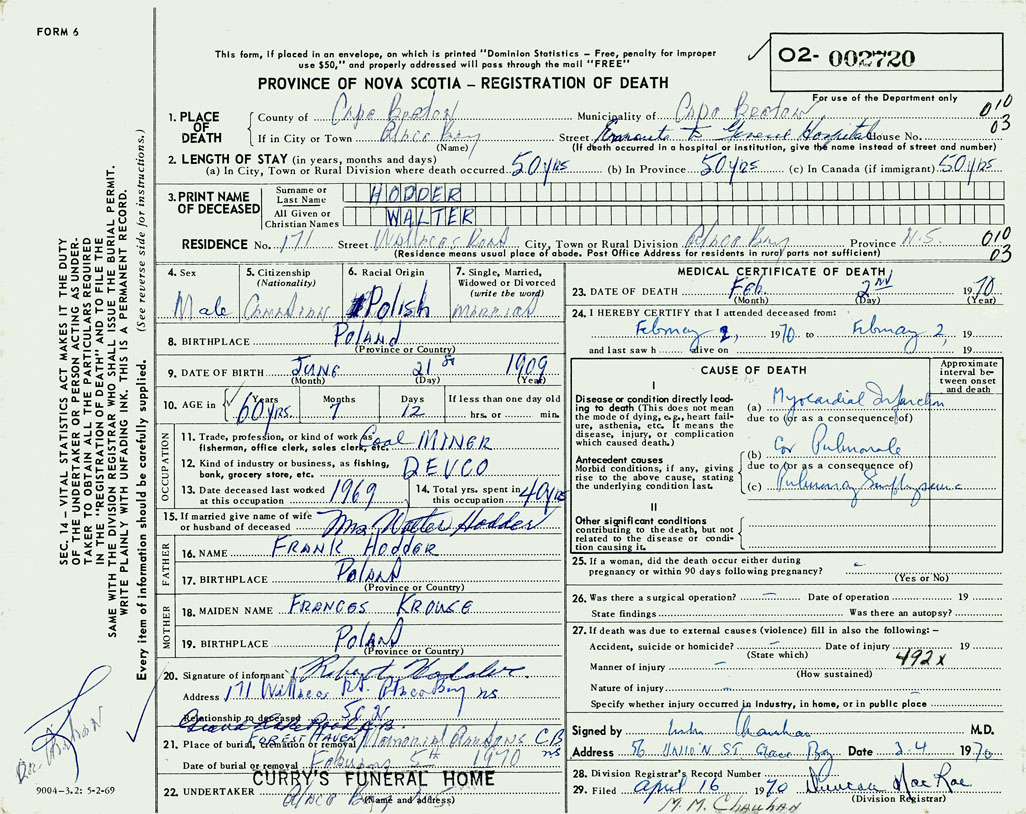 FORM 6
This form, if placed in an envelope, on which is printed "Dominion Statistics – Free, penalty for improper
use $50," and properly addressed will pass through the mail "FREE"
O2- 002720
PROVINCE OF NOVA SCOTIA – REGISTRATION OF DEATH
For use of the Department only
010
03
1. PLACE OF DEATH
County of Cape Breton Municipality of Cape Breton
If in City or Town Glace Bay Street Enroute to General Hospital House No.
(Name) (If death occurred in a hospital or institution, give the name instead of street and number)
2. LENGTH OF STAY (in years, months and days)
(a) In City, Town or Rural Division where death occurred 50 yrs (b) In Province 50 yrs (c) In Canada (if immigrant) 50 yrs
3. PRINT NAME OF DECEASED
Surname or Last Name HODDER
All Given or Christian Names WALTER
RESIDENCE No. 171 Street Wallaces Road City, Town or Rural Division Glace Bay Province N.S. 010
03
(Residence means usual place of abode. Post Office Address for residents in rural parts not sufficient)
4. Sex
Male
5. Citizenship
(Nationality)
Canadian
6. Racial Origin
Polish
7. Single, Married,
Widowed or Divorced
(write the word)
Married
8. BIRTHPLACE Poland
(Province or Country)
9. DATE OF BIRTH JUNE 21st 1909
(Month) (Day) (Year)
10. AGE in Years Months Days If less than one day old
60 yrs. 7 12 hrs. or min.
OCCUPATION
11. Trade, profession, or kind of work as
fisherman, office clerk, sales clerk, etc. Coal MINER
12. Kind of industry or business, as fishing,
bank, grocery store, etc. DEVCO
13. Date deceased last worked
at this occupation 1969
14. Total yrs. spent in
this occupation 40 yrs
15. If married give name of wife
or husband of deceased Mrs Walter Hodder
FATHER
16. NAME FRANK HODDER
17. BIRTHPLACE Poland
(Province or Country)
MOTHER
18. MAIDEN NAME FRANCES KROUSE
19. BIRTHPLACE Poland
(Province or Country)
20. Signature of informant Hodder
Address 171 Wallace Rd. Glace Bay NS
Relationship to deceased Son
21. Place of burial, cremation or removal FOREST HAVEN Memorial Gardens C.B. NS
Date of burial or removal February 5th 1970
22. UNDERTAKER CURRY'S FUNERAL HOME
Glace Bay
(Name and address)
MEDICAL CERTIFICATE OF DEATH
23. DATE OF DEATH Feb. 2nd 1970
(Month) (Day) (Year)
24. I HEREBY CERTIFY that I attended deceased from:
February 2, 1970 to February 2, 19
and last saw h alive on 19
CAUSE OF DEATH
Approximate interval between onset and death
I
Disease or condition directly leading to death (This does not mean the mode of dying, e.g., heart failure, asthenia, etc. It means the disease, injury, or complication which caused death.)
(a) Myocardial Infarction
due to (or as a consequence of)
Antecedent causes
Morbid conditions, if any, giving rise to the above cause, stating the underlying condition last.
(b) Cor Pulmonale
due to (or as a consequence of)
(c) Pulmonary Emphysema
II
Other significant conditions
contributing to the death, but not related to the disease or condition causing it.
25. If a woman, did the death occur either during
pregnancy or within 90 days following pregnancy? –
(Yes or No)
26. Was there a surgical operation? – Date of operation 19
State findings Was there an autopsy?
27. If death was due to external causes (violence) fill in also the following: –
Accident, suicide or homicide? – Date of injury 19
(State which) 492x
Manner of injury –
(How sustained)
Nature of injury –
Specify whether injury occurred in industry, in home, or in public place
Signed by Chauhan M.D.
Address 56 UNION ST Glace Bay Date 3.4 1970
28. Division Registrar's Record Number
29. Filed April 16 1970 Duncan MacRae
(Division Registrar)
M. M. Chauhan
SEC. 14 – VITAL STATISTICS ACT MAKES IT THE DUTY
OF THE UNDERTAKER OR PERSON ACTING AS UNDER-
TAKER TO OBTAIN ALL THE PARTICULARS REQUIRED
IN THE "REGISTRATION OF DEATH" AND TO FILE THE
SAME WITH THE DIVISION REGISTRAR WHO SHALL ISSUE THE BURIAL PERMIT.
WRITE PLAINLY WITH UNFADING INK. THIS IS A PERMANENT RECORD.
Every item of information should be carefully supplied. (See reverse side for instructions.)
9004-3.2: 5-2-69